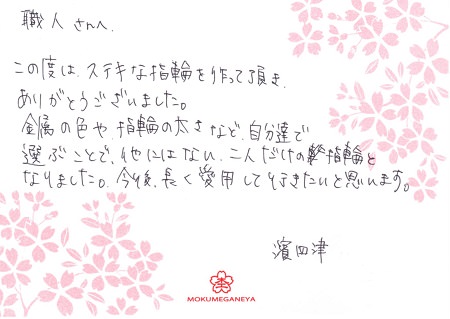 職人さんへ
この度は、ステキな指輪を作って頂き、
ありがとうございました。
金属の色や、指輪の太さなど、自分達で
選ぶことで、他にはない、二人だけの指輪と
なりました。今後、長く愛用して行きたいと思います。
濱田津
MOKUMEGANEYA